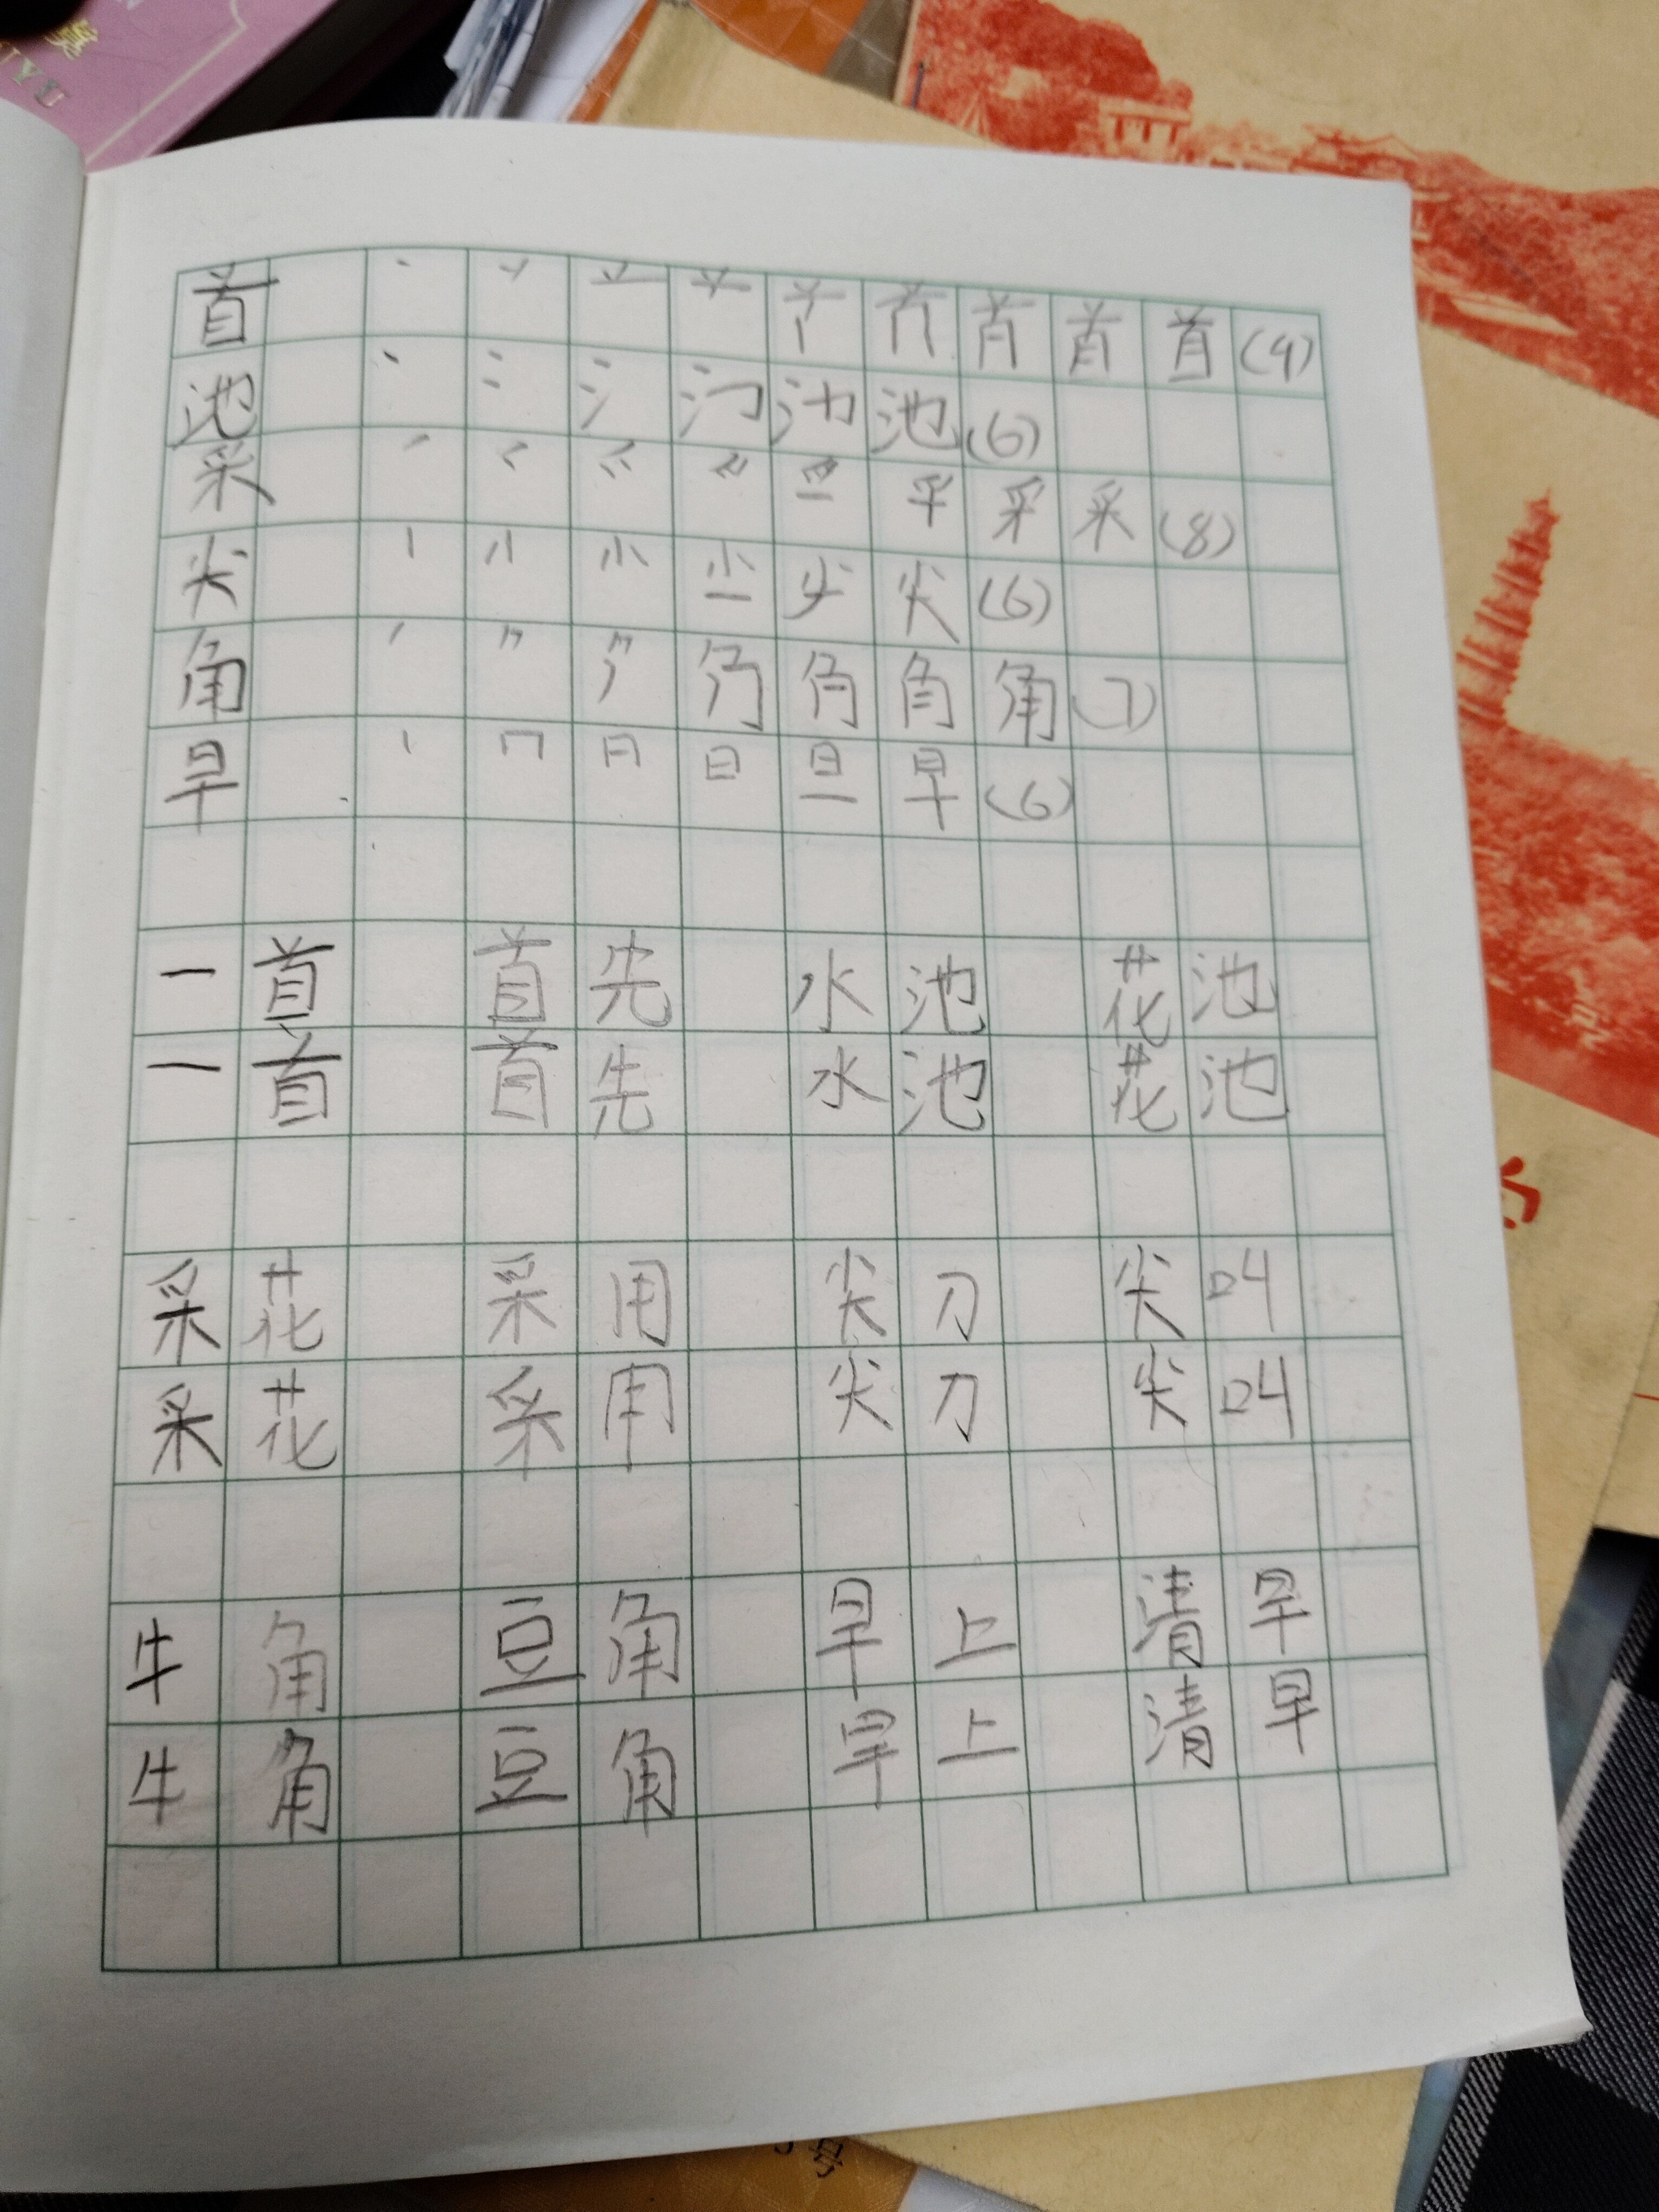 UYU
首 丶 丷 䒑 首 (9)
池 丶 冫 氵 池 (6)
采 丿 采 (8)
尖 丨 小 尖 尖 (6)
角 丿 角 (7)
早 丨 冂 日 日 旦 早 (6)
一首 首先 水池 花池
一首 首先 水池 花池
采花 采用 尖刀 尖叫
采花 采用 尖刀 尖叫
牛角 豆角 早上 清早
牛角 豆角 早上 清早